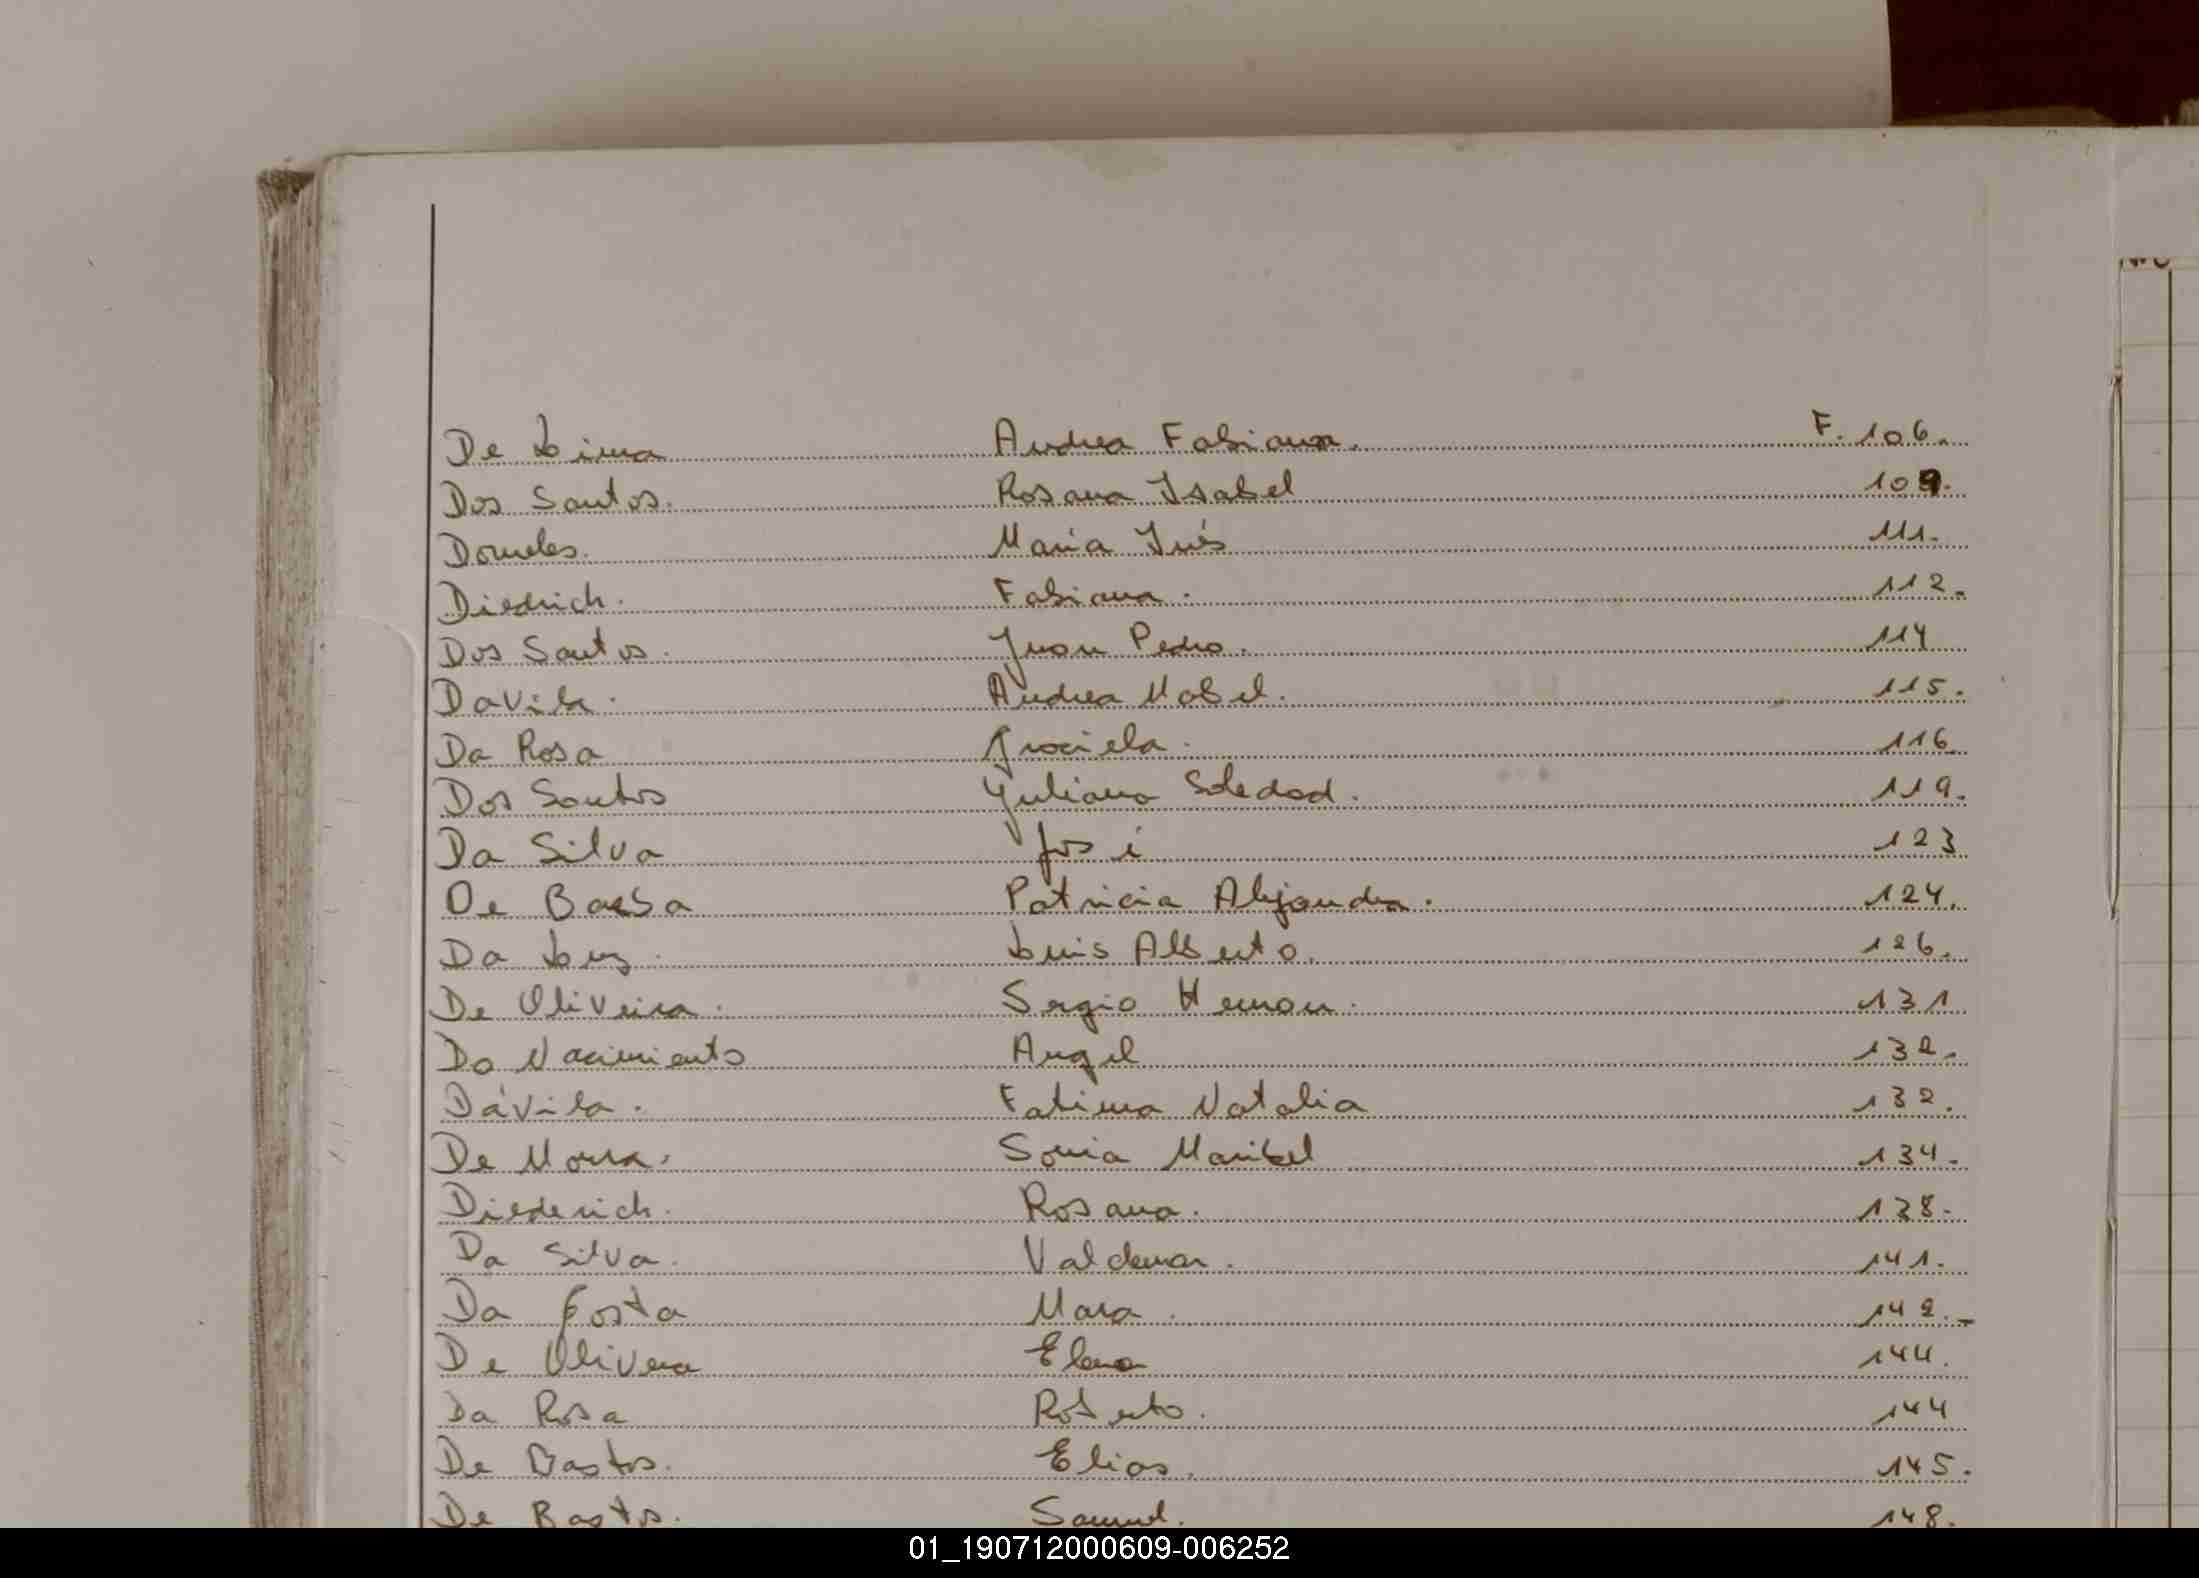 De Lima Andrea Fabiana. F. 106.
Dos Santos. Rosana Isabel 109.
Dorneles. Maria Inés 111.
Diedrich. Fabiana. 112.
Dos Santos. Juan Pedro. 114
Davila. Andrea Mabel. 115.
Da Rosa Graciela. 116.
Dos Santos Juliana Soledad. 119.
Da Silva José 123
De Patricia Alejandra. 124.
Da Luz. Luis Alberto. 126.
De Oliveira. Sergio Hernan. 131
Do Nacimiento Angel 132.
Dávila. Fatima Natalia 132.
De Moura. Sonia Maribel 134.
Diederich. Rosana. 138.
Da Silva. Valdemar. 141.
Da Costa Mara. 142.-
De Olivera Elena 144.
Da Rosa Roberto. 144
De Bastos. Elias. 145.
De Bastos. Samuel. 148.
01_190712000609-006252